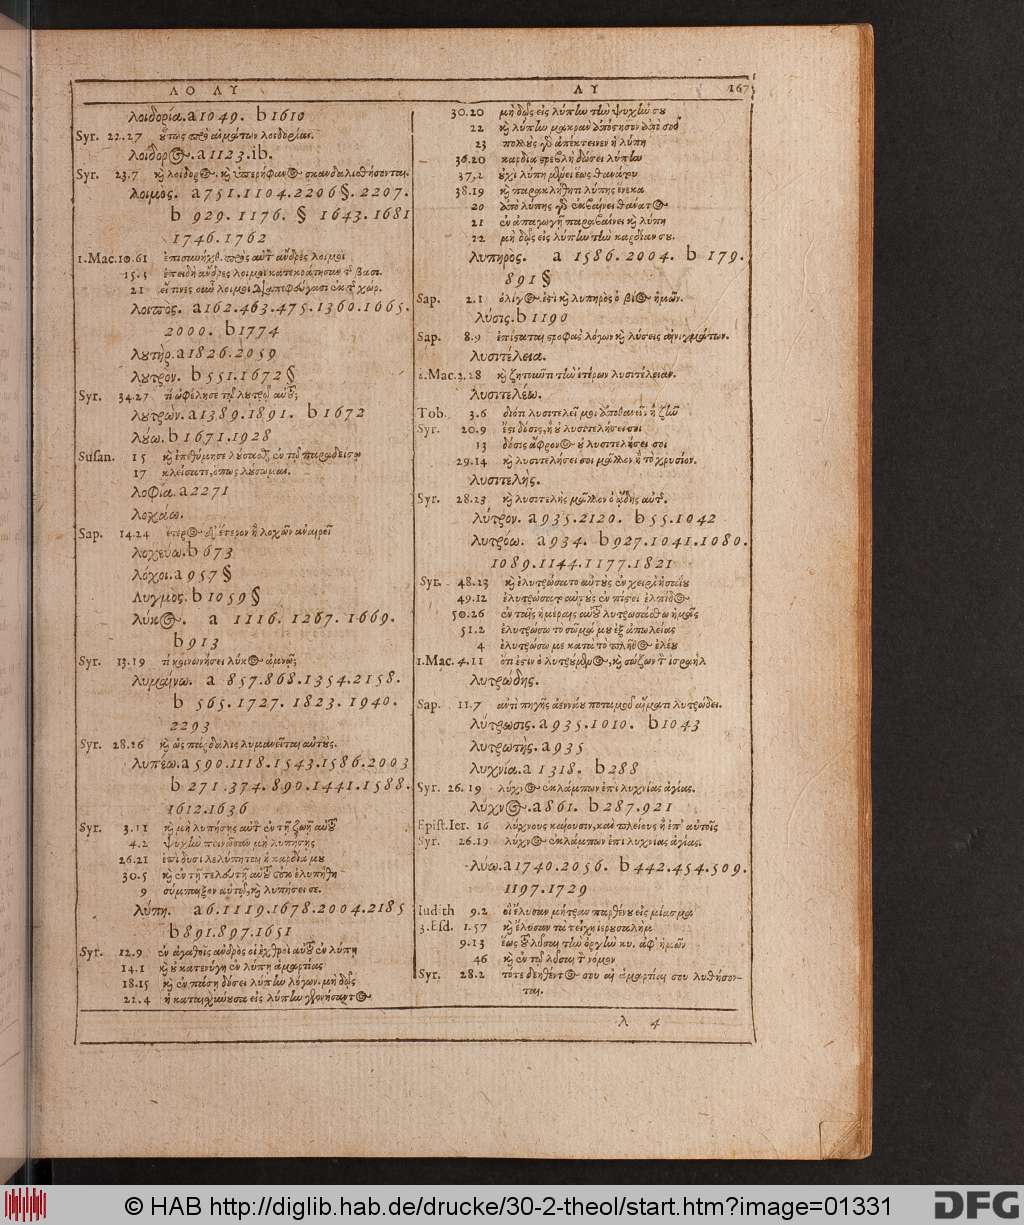 ΛΟ ΛΥ
ΛΥ 167
λοιδορία. a 1049. b 1610
Syr. 22.27 οὕτως πρὸ αἱμάτων λοιδορίαι.
λοίδορος. a 1123. ib.
Syr. 23.7 καὶ λοίδορος καὶ ὑπερήφανος σκανδαλισθήσονται.
λοιμός. a 751. 1104. 2206 §. 2207.
b 929. 1176. § 1643. 1681
1746. 1762
1. Mac. 10.61 ἐπισυνήχθ. πρὸς αὐτ ἄνδρες λοιμοὶ
15.3 ἐπειδὴ ἄνδρες λοιμοὶ κατεκράτησαν τ βασι.
21 εἴ τινες οὖν λοιμοὶ διαπεφεύγασι ἐκ τ χωρ.
λοιπός. a 162. 463. 475. 1360. 1665.
2000. b 1774
λουτήρ. a 1826. 2059
λουτρόν. b 551. 1672 §
Syr. 34.27 τί ὠφέλησε τῷ λουτρῷ αὐτοῦ;
λουτρών. a 1389. 1891. b 1672
λούω. b 1671. 1928
Susan. 15 καὶ ἐπεθύμησε λούσασθ ἐν τῷ παραδείσῳ
17 κλείσατε, ὅπως λούσωμαι.
λοφία. a 2271
λοχάω.
Sap. 14.24 ἕτερος δ᾽ ἕτερον ἢ λοχῶν ἀναιρεῖ
λοχεύω. b 673
λόχοι. a 957 §
Λυγμος. b 1059 §
λύκος. a 1116. 1267. 1669.
b 913
Syr. 13.19 τί κοινωνήσει λύκος ἀμνῷ;
λυμαίνω. a 857. 868. 1354. 2158.
b 565. 1727. 1823. 1940.
2293
Syr. 28.26 καὶ ὡς πάρδαλις λυμανεῖται αὐτούς.
λυπέω. a 590. 1118. 1543. 1586. 2003
b 271. 374. 890. 1441. 1588.
1612. 1636
Syr. 3.11 καὶ μὴ λυπήσῃς αὐτ ἐν τῇ ζωῇ αὐτοῦ
4.2 ψυχὴν πεινῶσαν μὴ λυπήσῃς
26.21 ἐπὶ δυσὶ λελύπηται ἡ καρδία μου
30.5 καὶ ἐν τῇ τελευτῇ αὐτοῦ οὐκ ἐλυπήθη
9 σύμπαιξον αὐτῷ, καὶ λυπήσει σε.
λύπη. a 6. 1119. 1678. 2004. 2185
b 891. 897. 1651
Syr. 12.9 ἐν ἀγαθοῖς ἀνδρὸς οἱ ἐχθροὶ αὐτοῦ ἐν λύπῃ
14.1 καὶ οὐ κατενύγη ἐν λύπῃ ἁμαρτίας
18.15 καὶ ἐν πάσῃ δόσει λύπην λόγων. μὴ δῷς
22.4 ἡ καταισχύνουσα εἰς λύπην γεννήσαντος
30.20 μὴ δῷς εἰς λύπην τὴν ψυχήν σου
22 καὶ λύπην μακρὰν ἀπόστησον ἀπὸ σοῦ
23 πολλοὺς γὰρ ἀπέκτεινεν ἡ λύπη
36.20 καρδία στρεβλὴ δώσει λύπην
37.2 οὐχὶ λύπη μένει ἕως θανάτου
38.19 καὶ παρακλήθητι λύπης ἕνεκα
20 ἀπὸ λύπης γὰρ ἐκβαίνει θάνατος
21 ἐν ἀπαγωγῇ παραβαίνει καὶ λύπη
22 μὴ δῷς εἰς λύπην τὴν καρδίαν σου.
λυπηρός. a 1586. 2004. b 179.
891 §
Sap. 2.1 ὀλίγος ἐστὶ καὶ λυπηρὸς ὁ βίος ἡμῶν.
λύσις. b 1190
Sap. 8.9 ἐπίσταται στροφὰς λόγων καὶ λύσεις αἰνιγμάτων.
λυσιτέλεια.
2. Mac. 2.28 καὶ ζητοῦντι τὴν ἑτέρων λυσιτέλειαν.
λυσιτελέω.
Tob. 3.6 διότι λυσιτελεῖ μοι ἀποθανεῖν ἢ ζῆν
Syr. 20.9 ἔστι δόσις, ἣ οὐ λυσιτελήσει σοι
13 δόσις ἄφρονος οὐ λυσιτελήσει σοι
29.14 καὶ λυσιτελήσει σοι μᾶλλον ἢ τὸ χρυσίον.
λυσιτελής.
Syr. 28.23 καὶ λυσιτελὴς μᾶλλον ὁ ᾅδης αὐτ.
λύτρον. a 935. 2120. b 55. 1042
λυτρόω. a 934. b 927. 1041. 1080.
1089. 1144. 1177. 1821
Syr. 48.23 καὶ ἐλυτρώσατο αὐτοὺς ἐν χειρὶ ἡσαΐου
49.12 ἐλυτρώσατο αὐτοὺς ἐν πίστει ἐλπίδος
50.26 ἐν ταῖς ἡμέραις αὐτοῦ λυτρωσάσθω ἡμᾶς
51.2 ἐλυτρώσω τὸ σῶμά μου ἐξ ἀπωλείας
4 ἐλυτρώσω με κατὰ τὸ πλῆθος ἐλέου
1. Mac. 4.11 ὅτι ἐστὶν ὁ λυτρούμενος, καὶ σώζων τ ἰσραήλ
λυτρώδης.
Sap. 11.7 αὐτὶ πηγῆς ἀεννάου ποταμοῦ αἵματι λυτρώδει.
λύτρωσις. a 935. 1010. b 1043
λυτρωτής. a 935
λυχνία. a 1318. b 288
Syr. 26.19 λύχνος ἐκλάμπων ἐπὶ λυχνίας ἁγίας.
λύχνος. a 861. b 287. 921
Epist. Ier. 16 λύχνους καίουσιν, καὶ πλείους ἢ ἐπ᾽ αὐτοῖς
Syr. 26.19 λύχνος ἐκλάμπων ἐπὶ λυχνίας ἁγίας.
λύω. a 1740. 2056. b 442. 454. 509.
1197. 1729
Iudith 9.2 οἳ ἔλυσαν μήτραν παρθένου εἰς μίασμα
3. Esd. 1.57 καὶ ἔλυσαν τὰ τείχη ἱερουσαλὴμ
9.13 ἕως οὗ λῦσαι τὴν ὀργὴν κυ. ἀφ᾽ ἡμῶν
46 καὶ ἐν τῷ λῦσαι τ νόμον
Syr. 28.2 τότε δεηθέντος σου αἱ ἁμαρτίαι σου λυθήσον-
ται.
λ 4
© HAB http://diglib.hab.de/drucke/30-2-theol/start.htm?image=01331
DFG